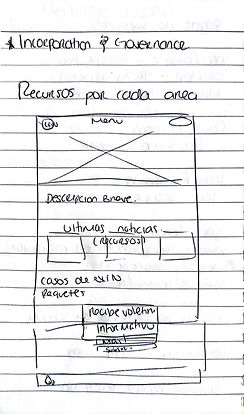 * Incorporation & Governance
Recursos por cada area
Menu
Descripcion Breve.
Ultimas noticias
(recursos)
casos de
Paquetes
recibe voletin
informativo
Mail